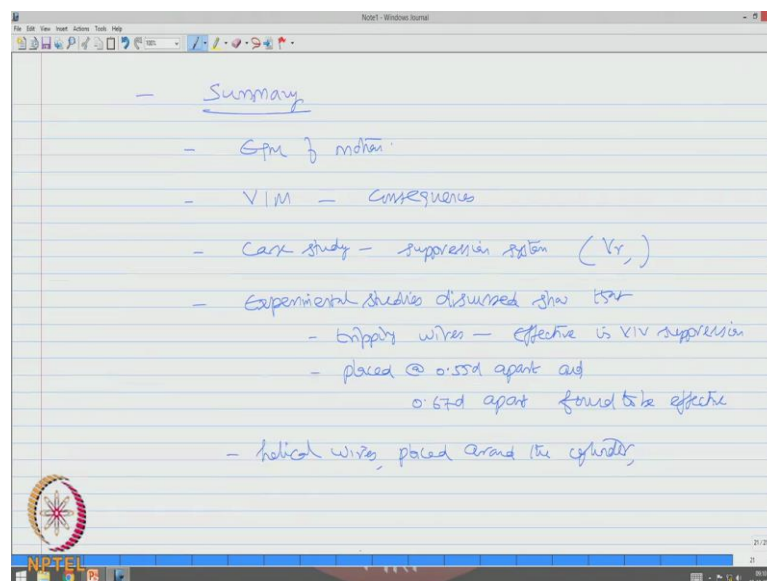 Note1 - Windows Journal
File Edit View Insert Actions Tools Help
- Summary
- Eqn of motion.
- VIM - consequences
- Case study - suppression system (Vr,)
- Experimental studies discussed show that
- tripping wires - effective is VIV suppression
- placed @ 0.55d apart and
0.67d apart found to be effective
- helical wires, placed around the cylinder,
NPTEL